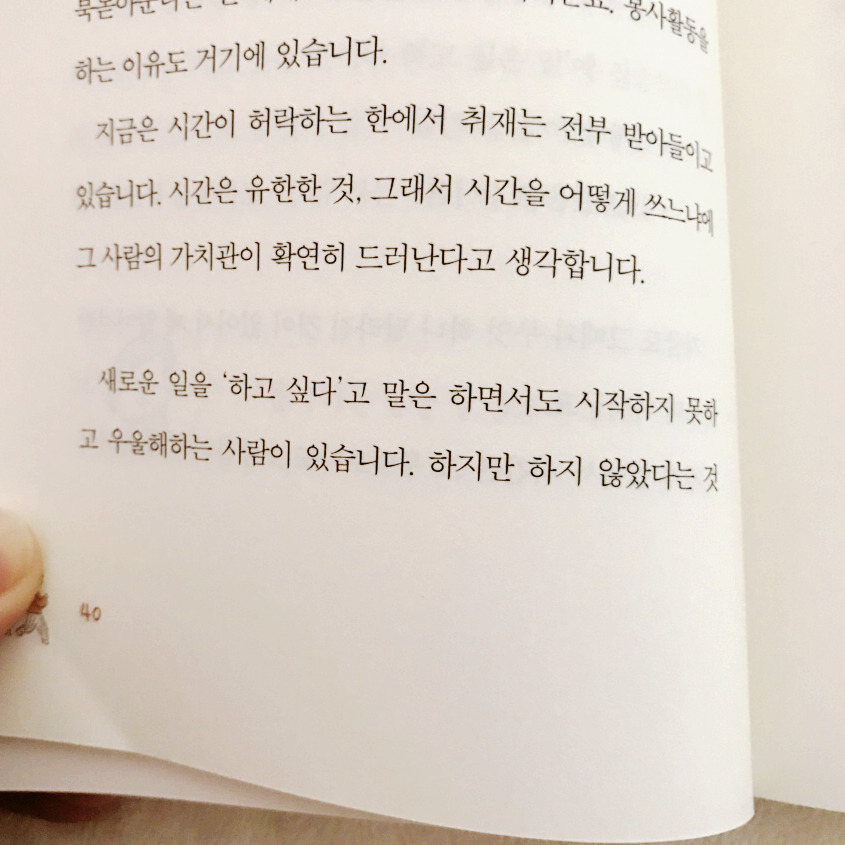 봉사활동을
하는 이유도 거기에 있습니다.
지금은 시간이 허락하는 한에서 취재는 전부 받아들이고
있습니다. 시간은 유한한 것, 그래서 시간을 어떻게 쓰느냐에
그 사람의 가치관이 확연히 드러난다고 생각합니다.
새로운 일을 ‘하고 싶다’고 말은 하면서도 시작하지 못하
고 우울해하는 사람이 있습니다. 하지만 하지 않았다는 것
40